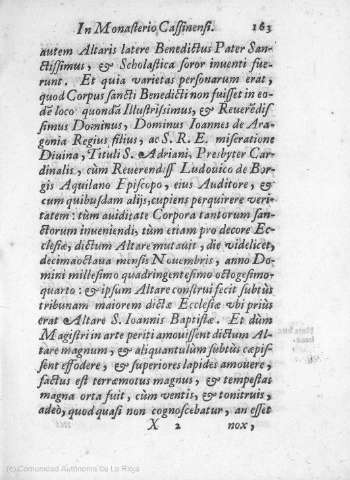 In Monasterio Cassinensi. 163
autem Altaris latere Benedictus Pater San-
ctissimus, & Scholastica soror inventi fue-
runt. Et quia varietas personarum erat,
quod Corpus sancti Benedicti non fuisset in eo-
dē loco quondā Illustrissimus, & Reverēdis-
simus Dominus, Dominus Ioannes de Ara-
gonia Regius filius, ac S. R. E. miseratione
Diuina, Tituli S. Adriani, Presbyter Car-
dinalis, cùm Reverendiss Ludouico de Bor-
gis Aquilano Episcopo, eius Auditore, &
cum quibusdam alijs, cupiens perquirere veri-
tatem: tùm auiditate Corpora tantorum san-
ctorum inueniendi, tùm etiam pro decore Ec-
clesiæ, dictum Altare mutauit, die videlicet,
decimaoctaua mensis Nouembris, anno Do-
mini millesimo quadringentesimo octogesimo-
quarto: & ipsum Altare construi fecit subtùs
tribunam maiorem dictæ Ecclesiæ vbi priùs
erat Altare S. Ioannis Baptistæ. Et dùm
Magistri in arte periti amouissent dictum Al-
tare magnum, & aliquantulùm subtùs cæpis-
sent effodere, & superiores lapides amouere,
factus est terræmotus magnus, & tempestas
magna orta fuit, cùm ventis, & tonitruis,
adeò, quod quasi non cognoscebatur, an esset
X 2 nox,
(c) Comunidad Autónoma De La Rioja